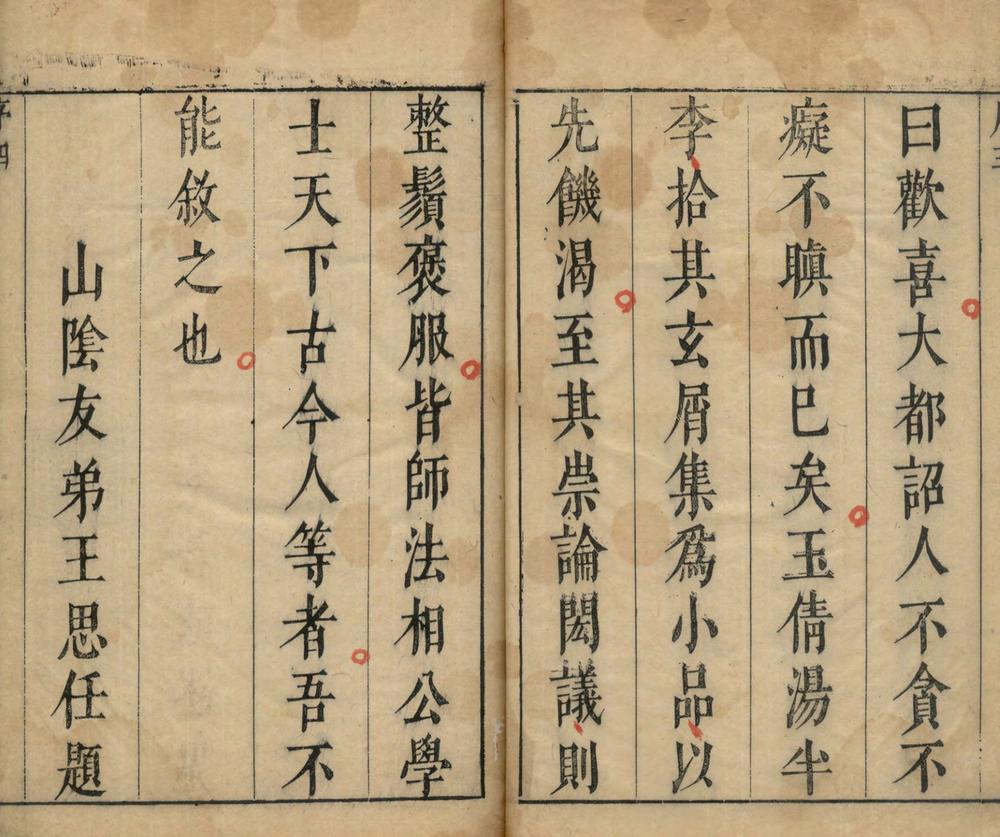 曰歡喜大都詔人不貪不
癡不嗔而已矣玉倩湯半
李拾其玄屑集爲小品以
先饑渴至其崇論閎議則
整鬚褒服皆師法相公學
士天下古今人等者吾不
能敘之也
山陰友弟王思任題